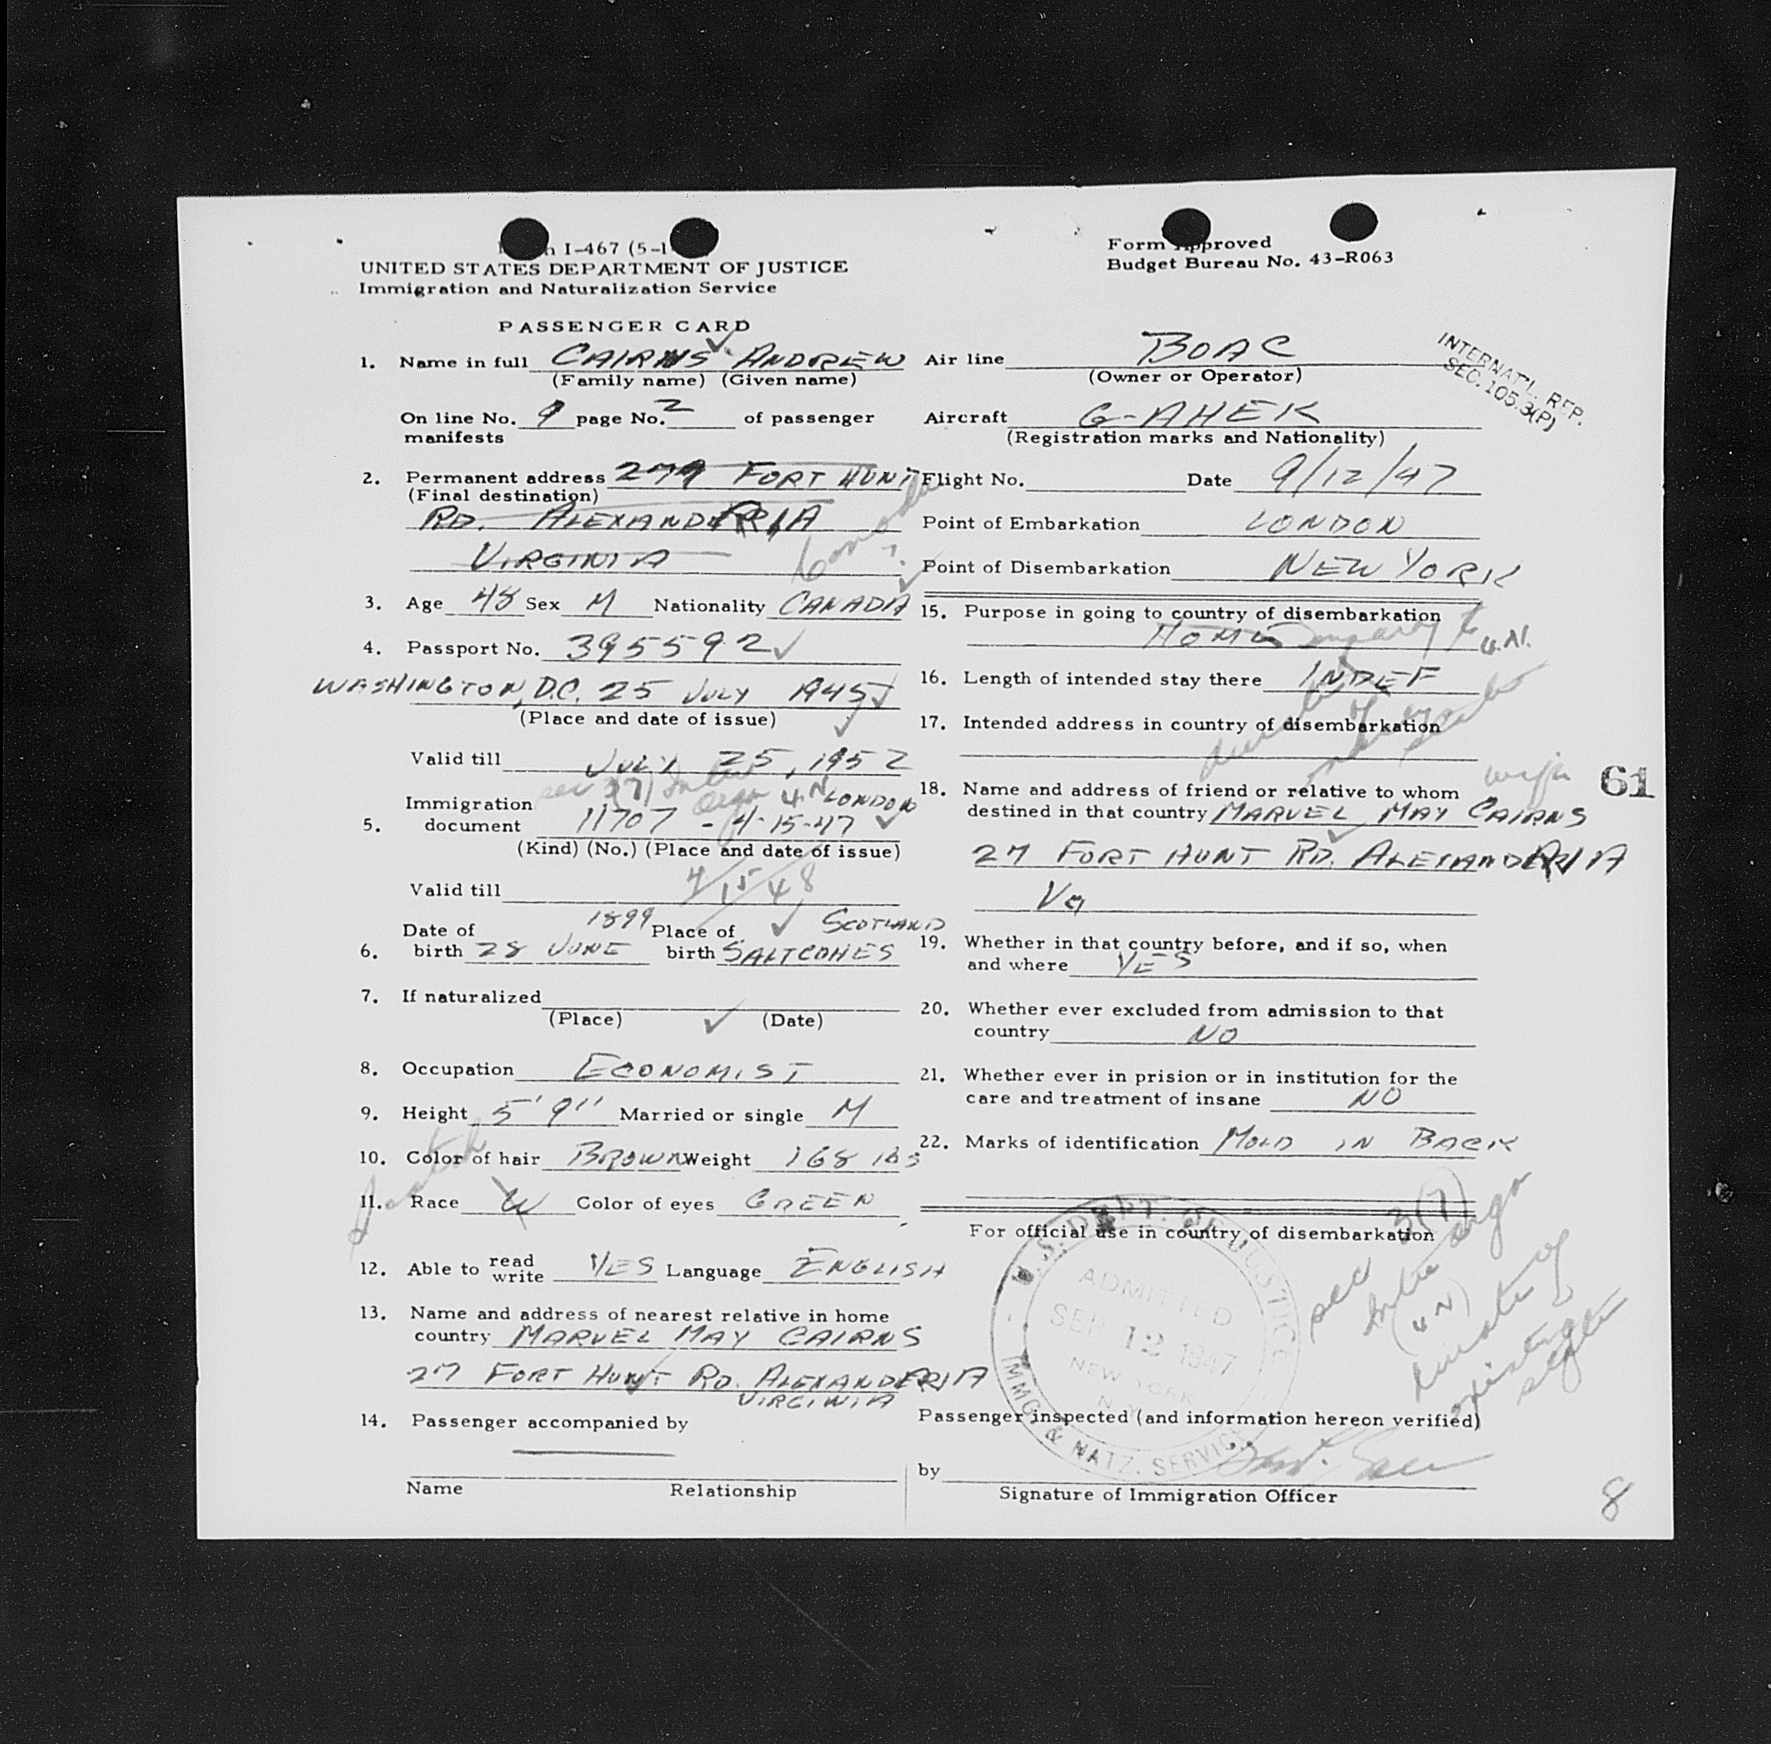 I-467 (5-1
UNITED STATES DEPARTMENT OF JUSTICE
Immigration and Naturalization Service
Form Approved
Budget Bureau No. 43-R063
PASSENGER CARD
1. Name in full CAIRNS ANDREW
(Family name) (Given name)
On line No. 9 page No. 2 of passenger
manifests
2. Permanent address 279 FORT HUNT
(Final destination)
RD. ALEXANDERIA
VIRGINIA
3. Age 48 Sex M Nationality CANADA
4. Passport No. 395592
WASHINGTON, D.C. 25 JULY 1945
(Place and date of issue)
Valid till JULY 25, 1952
sec 3(7)
4 N LONDON
5. Immigration
document 11707 - 4-15-47
(Kind) (No.) (Place and date of issue)
Valid till 4/15/48
1899 SCOTLAND
6. Date of
birth 28 JUNE Place of
birth SALTCOHES
7. If naturalized
(Place) (Date)
8. Occupation ECONOMIST
9. Height 5' 9'' Married or single M
10. Color of hair BROWN Weight 168 lbs
Scotch
11. Race W Color of eyes GREEN
12. Able to read
write YES Language ENGLISH
13. Name and address of nearest relative in home
country MARVEL MAY CAIRNS
27 FORT HUNT RD. ALEXANDERIA
VIRGINIA
14. Passenger accompanied by
Name Relationship
Air line BOAC
(Owner or Operator)
INTERNAT'L. REP.
SEC. 105.3(P)
Aircraft G-AHEK
(Registration marks and Nationality)
Flight No. Date 9/12/47
Point of Embarkation LONDON
Point of Disembarkation NEW YORK
15. Purpose in going to country of disembarkation
HOME
U.N.
16. Length of intended stay there INDEF
17. Intended address in country of disembarkation
wife
61
18. Name and address of friend or relative to whom
destined in that country MARVEL MAY CAIRNS
27 FORT HUNT RD. ALEXANDERIA
Va
19. Whether in that country before, and if so, when
and where YES
20. Whether ever excluded from admission to that
country NO
21. Whether ever in prision or in institution for the
care and treatment of insane NO
22. Marks of identification MOLD IN BACK
For official use in country of disembarkation
U.S. DEPT. OF JUSTICE
ADMITTED
SEP 12 1947
NEW YORK
N.Y.
IMMG. & NATZ. SERVICE
sec 3(7)
(UN)
Passenger inspected (and information hereon verified)
by
Signature of Immigration Officer
8